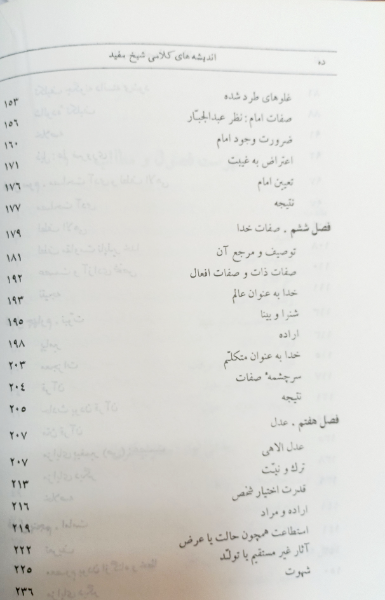 ده اندیشه‌های کلامی شیخ مفید
غلوهای طرد شده ۱۵۳
صفات امام: نظر عبدالجبّار ۱۵۶
ضرورت وجود امام ۱۶۰
اعتراض به غیبت ۱۷۱
تعیین امام ۱۷۶
نتیجه ۱۷۷
فصل ششم . صفات خدا ۱۷۹
توصیف و مرجع آن ۱۸۱
صفات ذات و صفات افعال ۱۹۲
خدا به عنوان عالم ۱۹۳
شنوا و بینا ۱۹۵
اراده ۱۹۸
خدا به عنوان متکلّم ۲۰۳
سرچشمهٔ صفات ۲۰۴
نتیجه ۲۰۵
فصل هفتم . عدل ۲۰۷
عدل الاهی ۲۰۷
ترك و نیّت ۲۱۳
قدرت اختیار شخص ۲۱۶
اراده و مراد ۲۱۹
استطاعت همچون حالت یا عرض ۲۲۲
آثار غیر مستقیم یا تولّد ۲۲۵
شهوت ۲۳۶